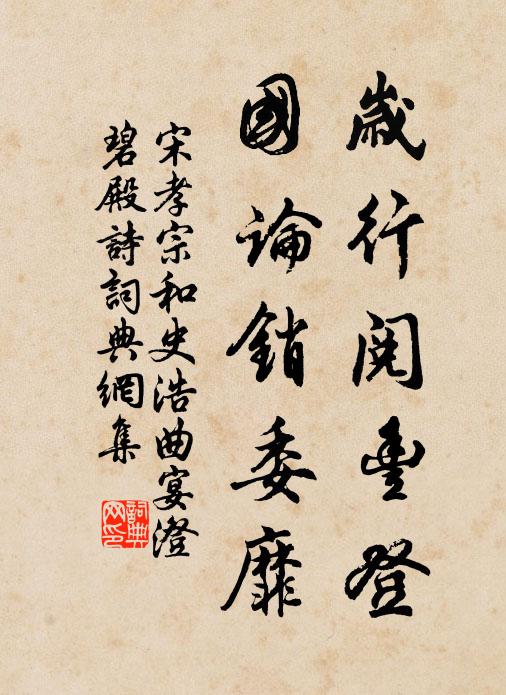 歲行閱豐登
國論銷委靡
宋孝宗和史浩曲宴澄
碧殿詩詞典網集
詞典网印